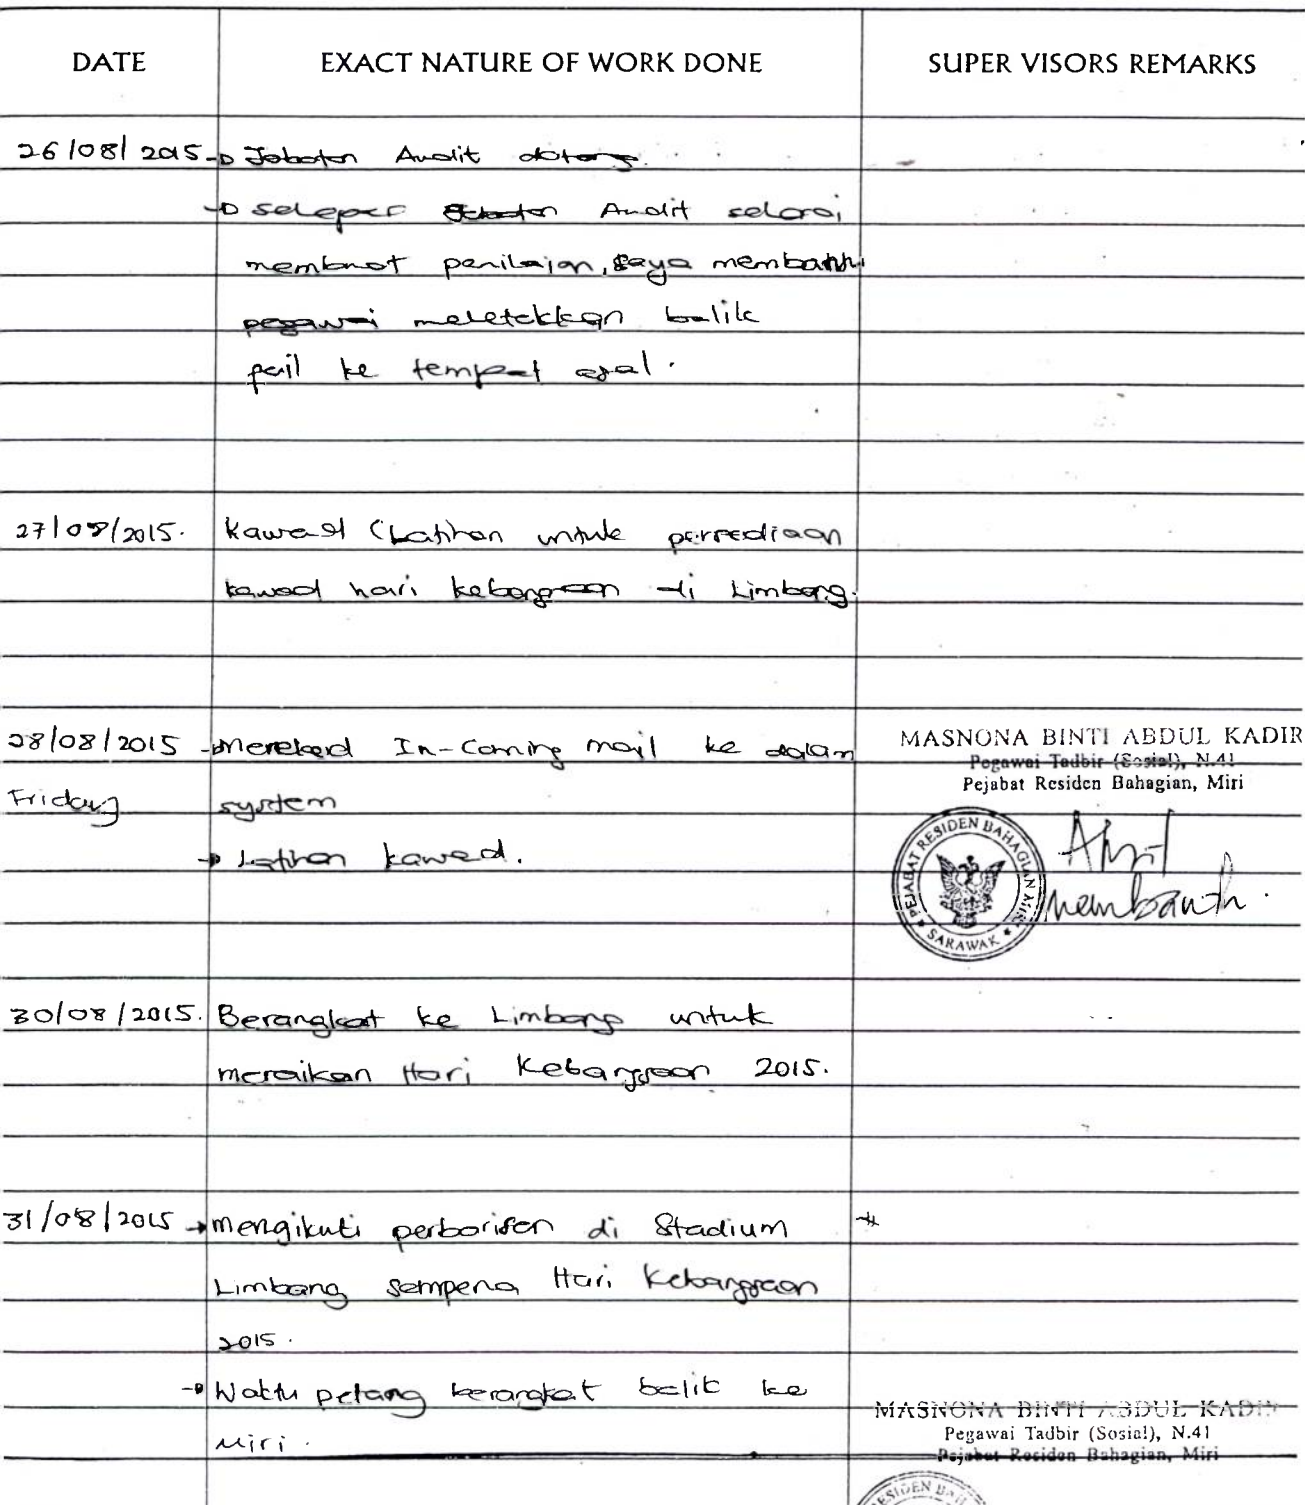 DATE EXACT NATURE OF WORK DONE SUPER VISORS REMARKS
26/08/2015 → Jabatan Audit datang.
→ selepas Audit selesai
membuat penilaian, saya membantu
pegawai meletakkan balik
fail ke tempat asal.
27/08/2015. Kawad (Latihan untuk persediaan
kawad hari kebangsaan di Limbang.
28/08/2015 → Merekod In-Coming mail ke dalam
Friday system
→ Latihan kawad.
MASNONA BINTI ABDUL KADIR
Pegawai Tadbir (Sosial), N.41
Pejabat Residen Bahagian, Miri
PEJABAT RESIDEN BAHAGIAN MIRI
SARAWAK
membantu.
30/08/2015. Berangkat ke Limbang untuk
meraikan Hari Kebangsaan 2015.
31/08/2015 → mengikuti perbarisan di Stadium
Limbang sempena Hari Kebangsaan
2015.
→ Waktu petang berangkat balik ke
Miri.
MASNONA BINTI ABDUL KADIR
Pegawai Tadbir (Sosial), N.41
Pejabat Residen Bahagian, Miri